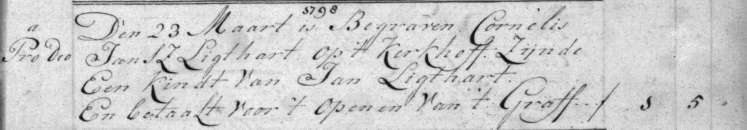 a
1798
Den 23 Maart is Begraven Cornelis
Pro Deo
Jansz Ligthart op 't Kerkhoff. Zijnde
Een Kindt van Jan Ligthart.
En betaalt voor 't openen van 't Graff. / 8 5